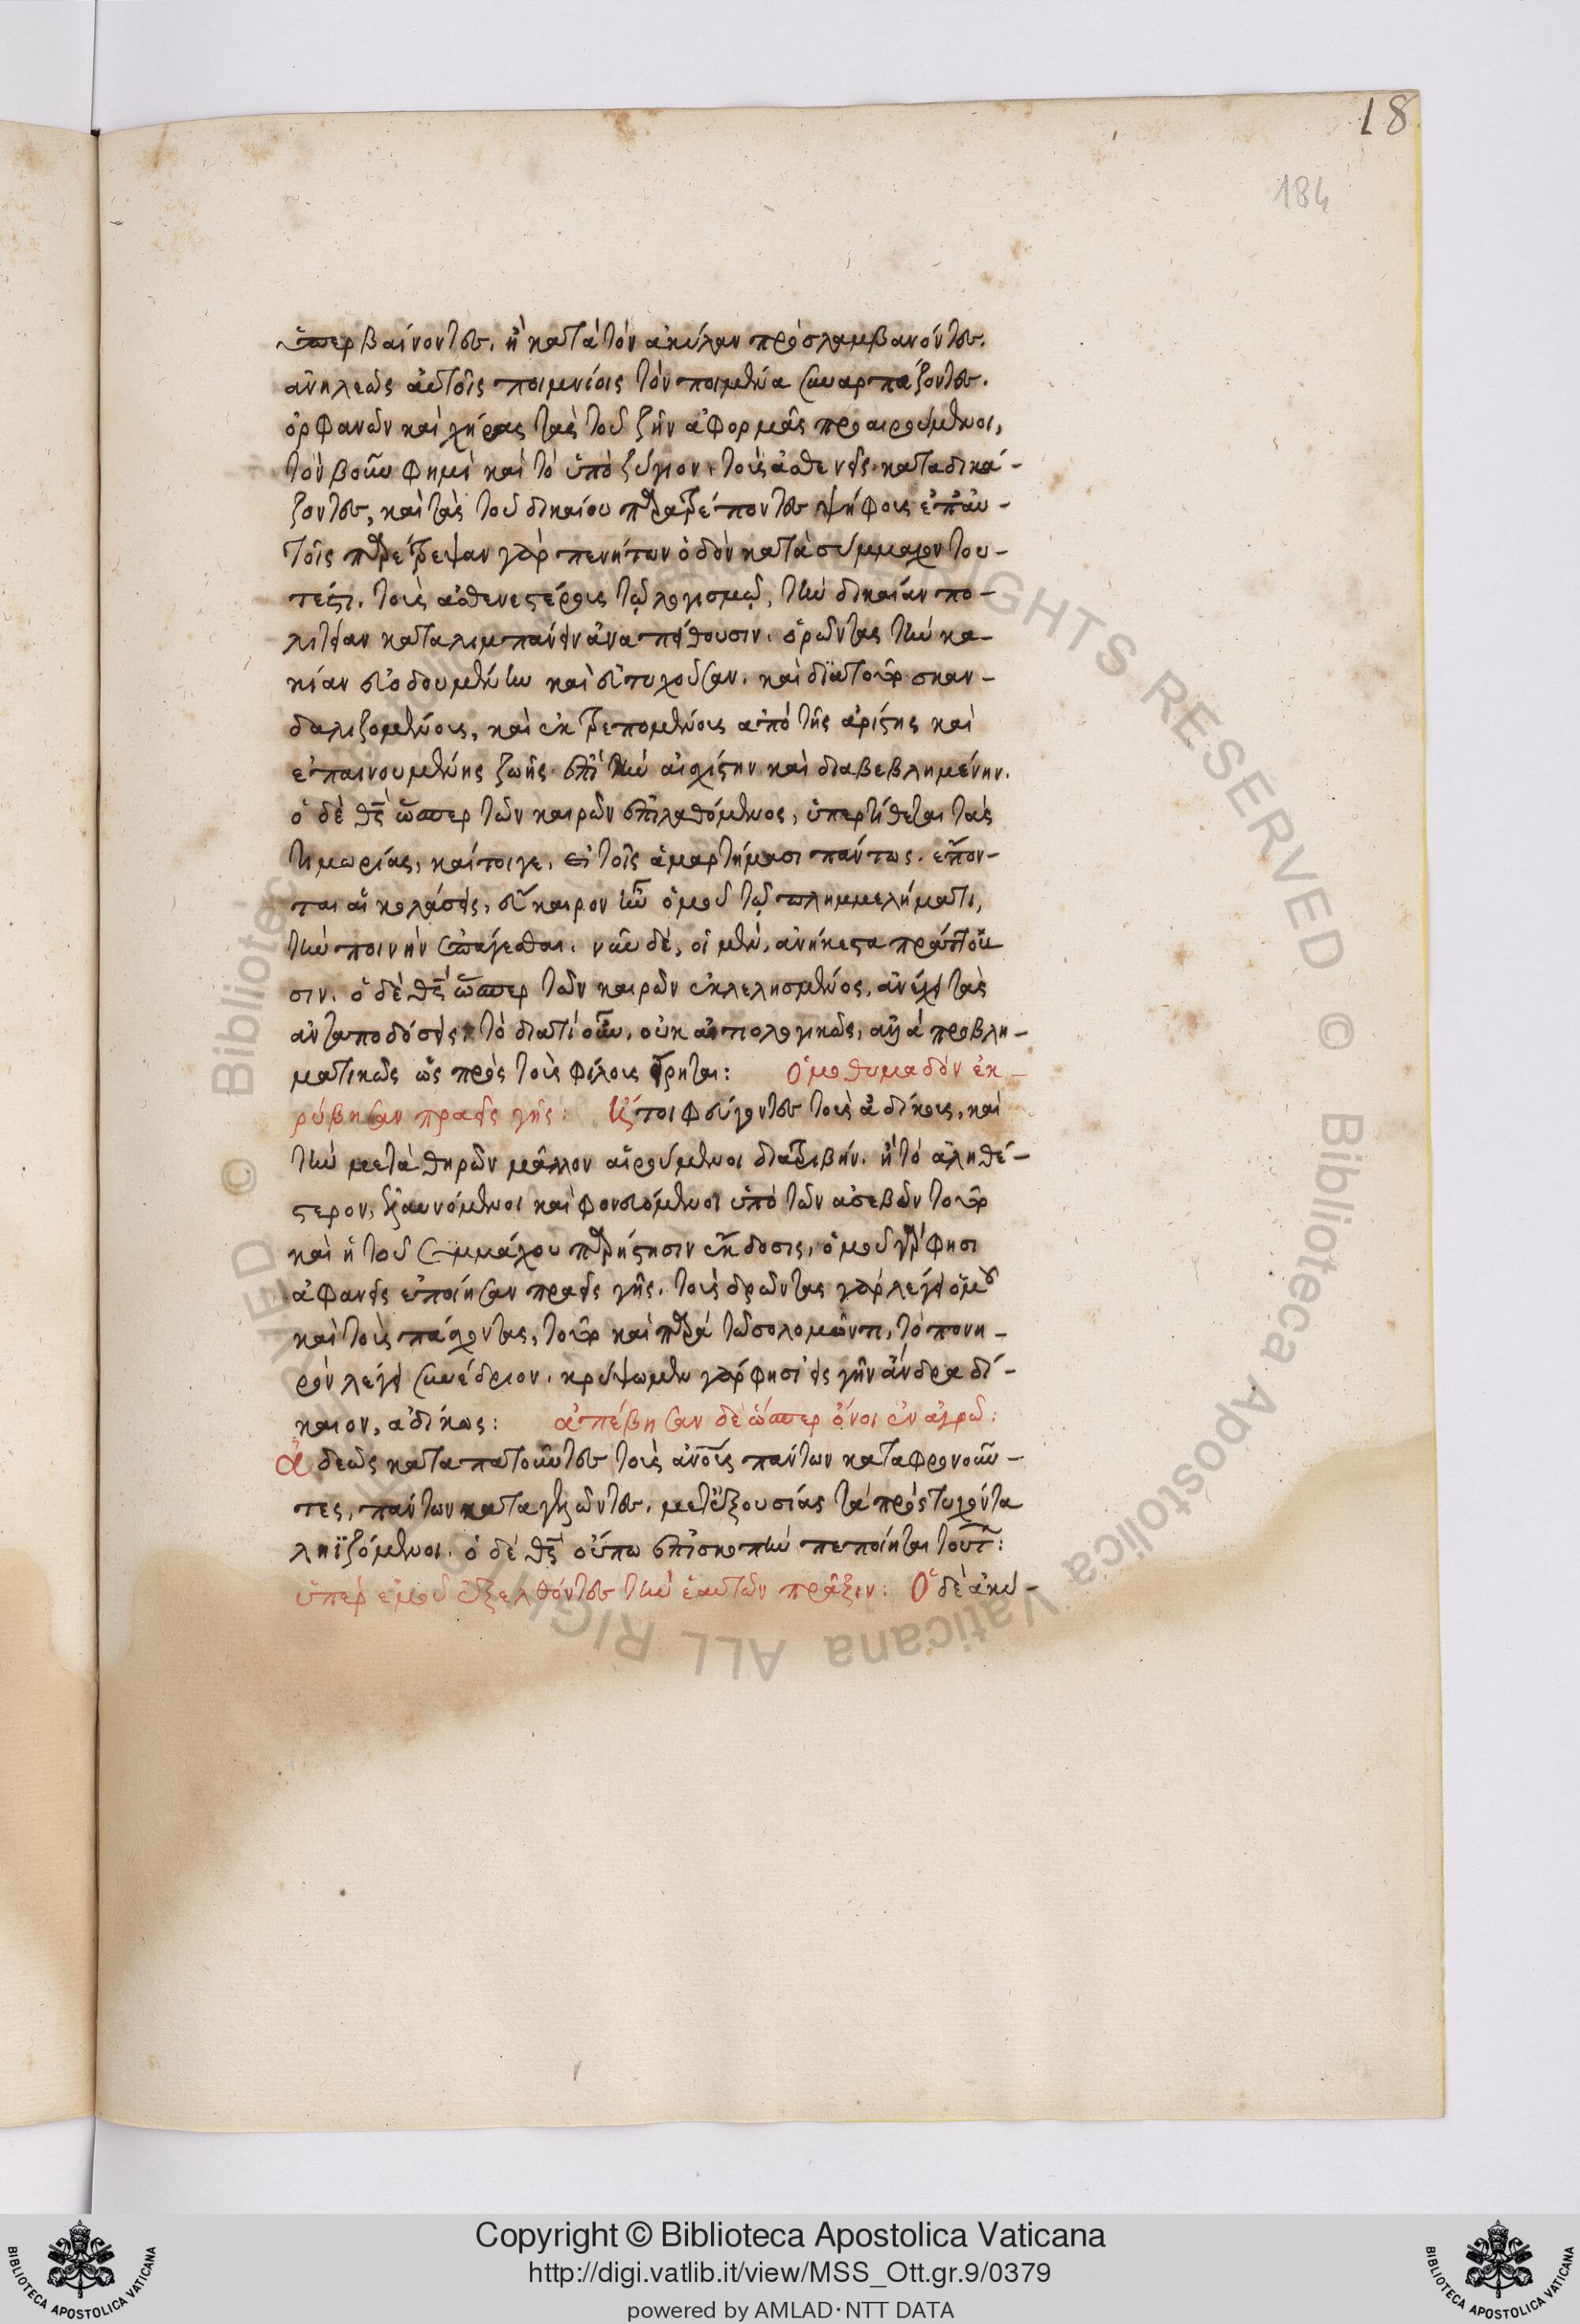 18
184
ὑπερβαίνοντες. ἢ κατὰ τὸν ἀκύλαν προσλαμβανόντες.
ἀνηλεῶς αὐτοῖς ποιμνίοις τὸν ποιμένα συναρπάζοντες.
ὀρφανῶν καὶ χήρας τὰς τοῦ ζῆν ἀφορμὰς προαιρούμενοι,
τὸν βοῦν φημὶ καὶ τὸ ὑποζύγιον. τοὺς ἀσθενεῖς καταδικά-
ζοντες, καὶ τὰς τοῦ δικαίου παρατρέποντες ψήφους ἐπ' αὐ-
τοῖς παρέτρεψαν γὰρ πενήτων ὁδὸν κατὰ σύμμαχον του-
τέστι. τοὺς ἀσθενεστέρους τῷ λογισμῷ, τὴν δικαίαν πο-
λιτείαν καταλιμπάνειν ἀναπείθουσιν. ὁρῶντας τὴν κα-
κίαν εὐοδουμένην καὶ εὐτυχοῦσαν. καὶ διατοῦτο σκαν-
δαλιζομένους, καὶ ἐκτρεπομένους ἀπὸ τῆς ἀρίστης καὶ
ἐπαινουμένης ζωῆς ἐπὶ τὴν αἰσχίστην καὶ διαβεβλημένην.
ὁ δὲ θς ὥσπερ τῶν καιρῶν ἐπιλαθόμενος, ὑπερτίθεται τὰς
τιμωρίας, καίτοιγε, εἰ τοῖς ἁμαρτήμασι πάντως. ἕπον-
ται αἱ κολάσεις, εὔκαιρον ἦν ὁμοῦ τῷ πλημμελήματι,
τὴν ποινὴν ἐπάγεσθαι. νῦν δὲ, οἱ μὲν, ἀνήκεστα πράττου
σιν. ὁ δὲ θς ὥσπερ τῶν καιρῶν ἐκλελησμένος, ἀνέχει τὰς
ἀνταποδόσεις τὸ διατί οὖν, οὐκ ἀπολογικῶς, ἀλλὰ προβλη-
ματικῶς ὡς πρὸς τοὺς φίλους εἴρηται: Ὁμοθυμαδὸν ἐκ-
ρύβησαν πραεῖς γῆς: Ἤτοι φεύγοντες τοὺς ἀδίκους, καὶ
τὴν μετὰ θηρῶν μᾶλλον αἱρούμενοι διατριβήν. ἢ τὸ ἀληθέ-
στερον, ἐλαυνόμενοι καὶ φονευόμενοι ὑπὸ τῶν ἀσεβῶν τοῦτο
καὶ ἡ τοῦ Συμμάχου παρίστησιν ἔκδοσις, ὁμοῦ γάρ φησι
ἀφανεῖς ἐποίησαν πραεῖς γῆς. τοὺς δρῶντας γὰρ λέγει ὁμοῦ
καὶ τοὺς πάσχοντας, τοῦτο καὶ παρὰ τῷ σολομῶντι, τὸ πονη-
ρὸν λέγει συνέδριον. κρύψωμεν γάρ φησὶ εἰς γῆν ἄνδρα δί-
καιον, ἀδίκως: ἀπέβησαν δὲ ὥσπερ ὄνοι ἐν ἀγρῷ:
Ἀδεῶς καταπατοῦντες τοὺς ἀνους πάντων καταφρονοῦν-
τες, πάντων καταγελῶντες. μετ' ἐξουσίας τὰ πρόστυχόντα
ληϊζόμενοι. ὁ δὲ θς οὔπω ἐπισκοπὴν πεποίηται τούτ:
ὑπὲρ ἐμοῦ ἐξελθόντες τὴν ἑαυτῶν πρᾶξιν: Ὁ δὲ ἀκύ-
Copyright © Biblioteca Apostolica Vaticana
http://digi.vatlib.it/view/MSS_Ott.gr.9/0379
powered by AMLAD·NTT DATA
BIBLIOTECA APOSTOLICA VATICANA
BIBLIOTECA APOSTOLICA VATICANA